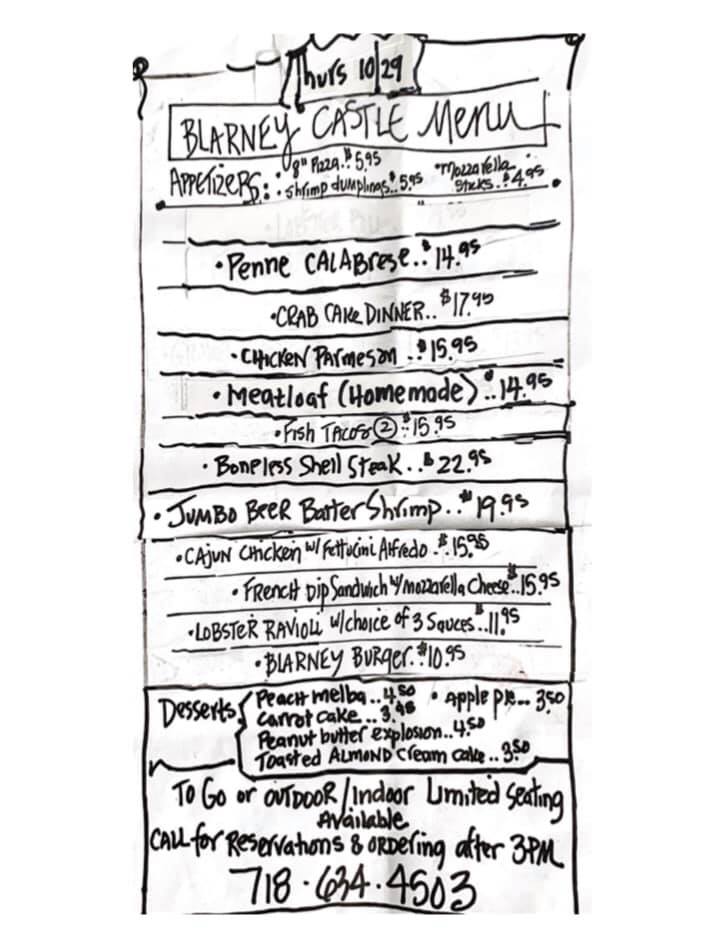 Thurs 10/29
BLARNEY CASTLE Menu
APPETIZERS: • 8" Pizza..$5.95
• Shrimp dumplings..$5.95
• Mozzarella Sticks..$4.95
• Penne CALABrese..$14.95
• CRAB CAKE DINNER..$17.95
• CHICKEN Parmesan..$15.95
• Meatloaf (Homemade)..$14.95
• Fish TACOS ②..$15.95
• Boneless Shell Steak..$22.95
• JUMBO BEER Batter Shrimp..$19.95
• CAJUN CHICKEN w/Fettucini Alfredo..$15.95
• FRENCH Dip Sandwich w/mozzarella Cheese..$15.95
• LOBSTER RAVIOLI w/choice of 3 Sauces..$11.95
• BLARNEY BURGER..$10.95
Desserts
Peach melba..4.50 • Apple pie... 3.50
Carrot cake..3.95
Peanut butter explosion..4.50
Toasted ALMOND Cream cake..3.50
To Go or OUTDOOR/Indoor Limited Seating
Available
CALL for Reservations & ORDering after 3PM
718·634·4503